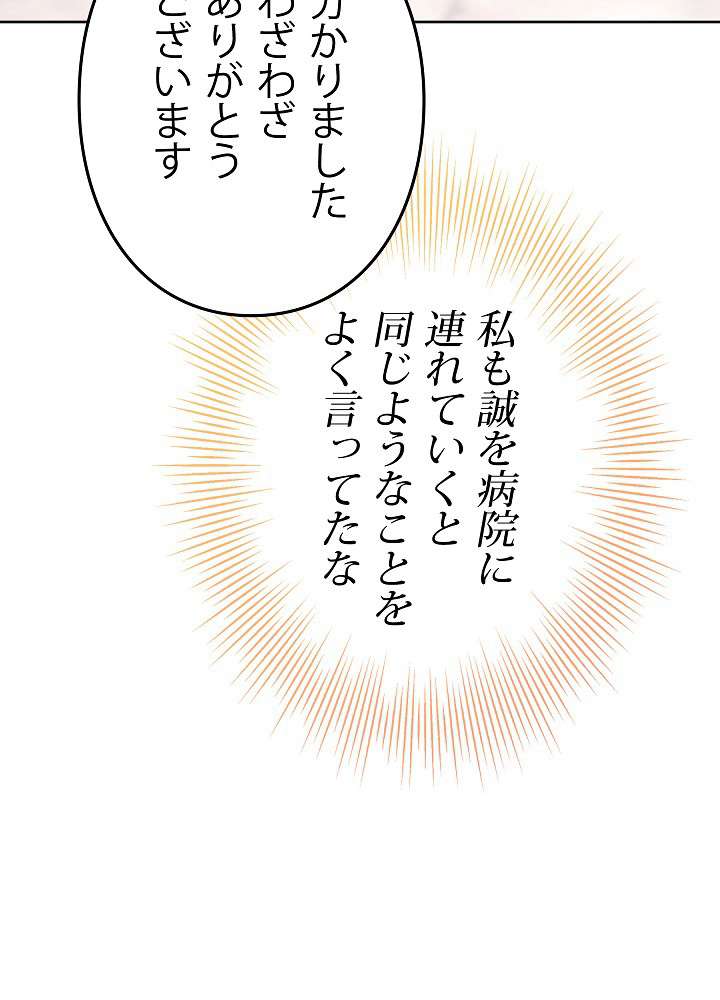 分かりました
わざわざ
ありがとう
ございます
私も誠を病院に
連れていくと
同じようなことを
よく言ってたな